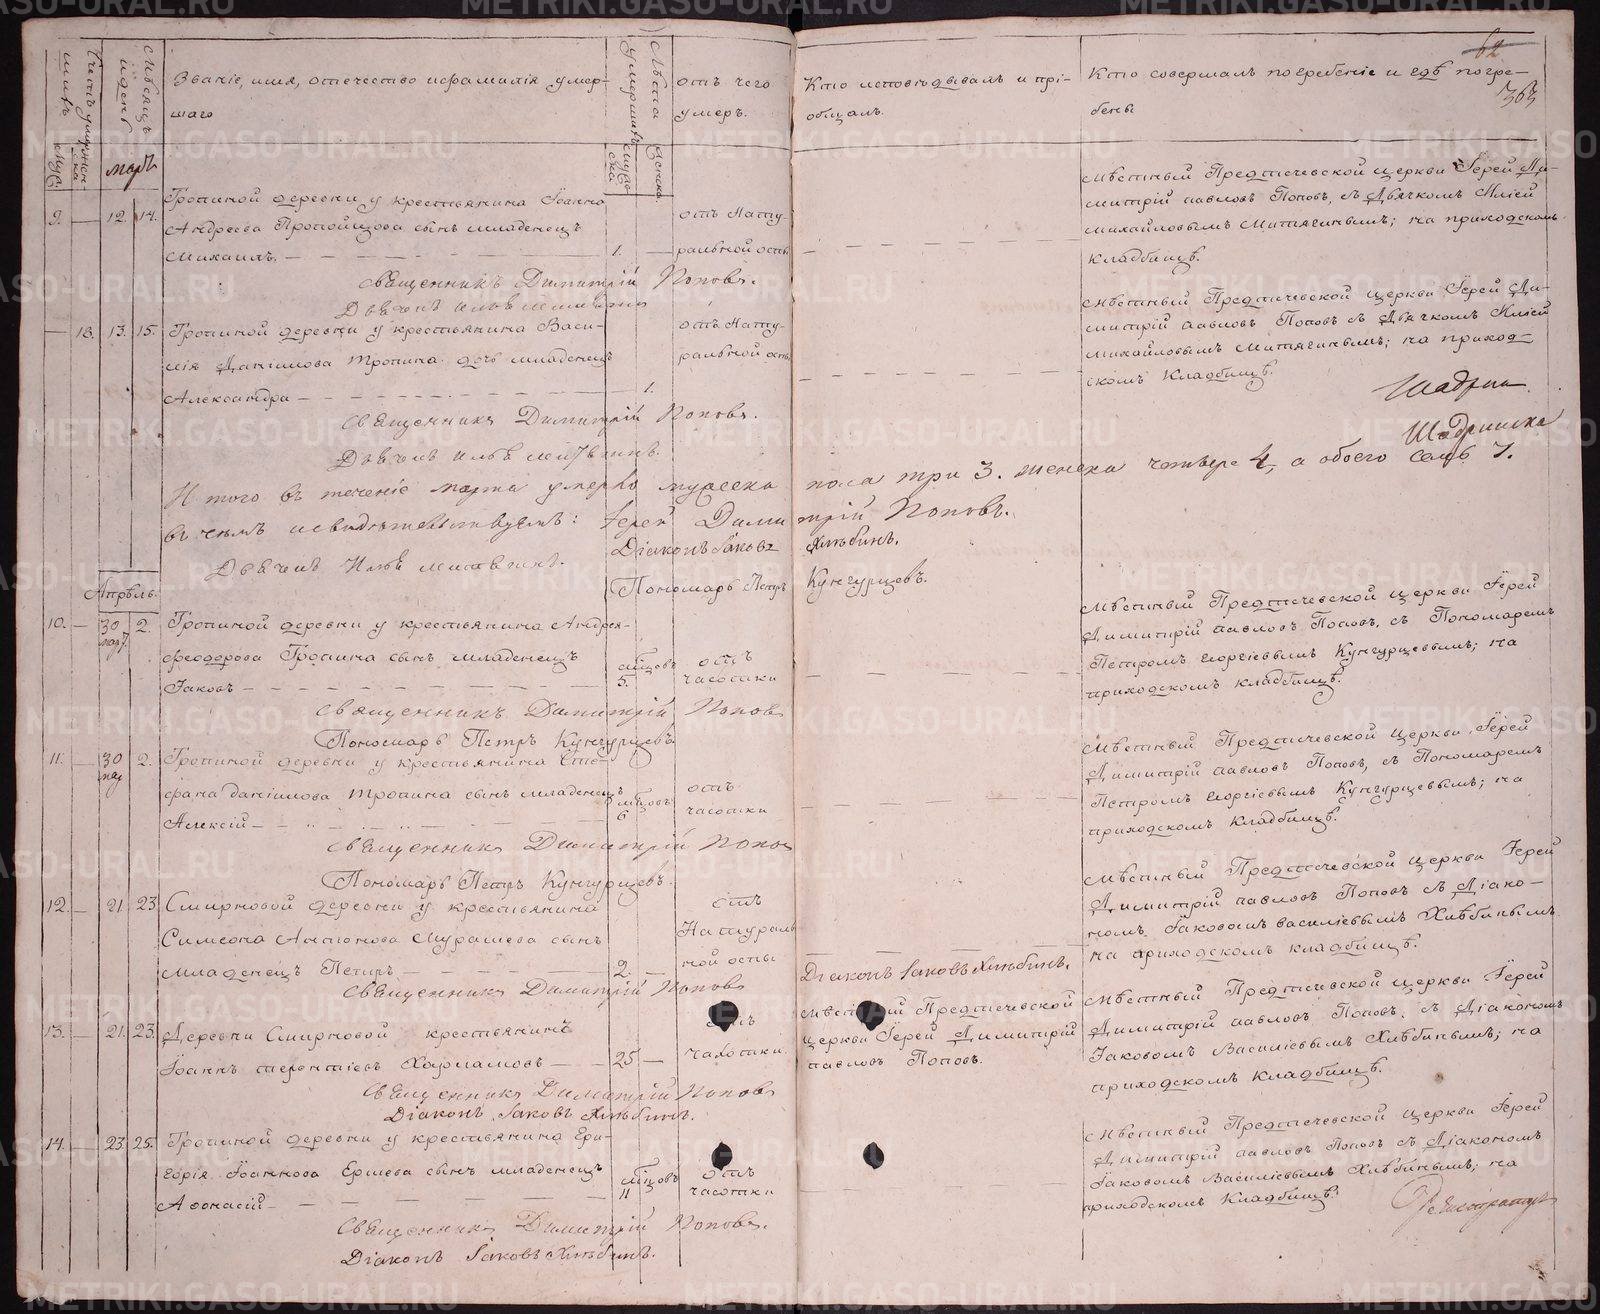 62
363
Счетъ умершихъ
мѣсяцъ и день
Званіе, имя, отечество и фамилія умер-
шаго
Лѣта умершихъ
отъ чего
умеръ.
Кто исповѣдывалъ и прі-
общалъ.
Кто совершалъ погребеніе и гдѣ погре-
бены
муж.
женска
мартъ
мужеска
женска
9. — 12. 14. Тропиной деревни у крестьянина Іоанна
Андреева Пропойщова сынъ младенецъ
Михаилъ. 1. —
отъ Нату-
ральной оспы
Мѣстный Предтечевской церкви Іерей Ди-
митрій Павловъ Поповъ, съ Дьячкомъ Иліей
Михайловымъ Митягинымъ; на приходскомъ
кладбищѣ.
Священникъ Димитрій Поповъ.
Дьячекъ Илья Митягинъ
— 18. 13. 15. Тропиной деревни у крестьянина Васи-
лія Даніилова Тропина дочь младенецъ
Александра — 1.
отъ Нату-
ральной осп.
Мѣстный Предтечевской церкви Іерей Ди-
митрій Павловъ Поповъ съ Дьячкомъ Иліей
Михайловымъ Митягинымъ; на приход-
скомъ Кладбищѣ.
Священникъ Димитрій Поповъ.
Дьячекъ Илья Митягинъ.
Шадрин
Шадринска
Итого въ теченіе марта умерло мужеска пола три 3. женска четыре 4, а обоего семь 7.
въ чемъ и свидѣтельствуемъ: Іерей Димитрій Поповъ.
Діаконъ Іаковъ Хлѣбинъ.
Дьячекъ Илья Митягинъ.
Пономарь Петръ Кунгурцевъ.
Апрѣль.
10. — 30 мар. 2. Тропиной деревни у крестьянина Андрея
Феодорова Тропина сынъ младенецъ
Іаковъ
мѣцовъ
5.
отъ
чахотки
Мѣстный Предтечевской церкви Іерей
Димитрій Павловъ Поповъ, съ Пономаремъ
Петромъ Георгіевымъ Кунгурцевымъ; на
приходскомъ кладбищѣ.
Священникъ Димитрій Поповъ
Пономарь Петръ Кунгурцевъ
11. — 30 мар 2. Тропиной деревни у крестьянина Сте-
фана Даніилова Тропина сынъ младенецъ
Алексій
мѣцовъ
6
отъ
чахотки
Мѣстный Предтечевской церкви Іерей
Димитрій Павловъ Поповъ, съ Пономаремъ
Петромъ Георгіевымъ Кунгурцевымъ; на
приходскомъ Кладбищѣ.
Священникъ Димитрій Попов
Пономарь Петръ Кунгурцевъ.
12. — 21. 23 Смирновой деревни у крестьянина
Симеона Антонова Мурашева сынъ
младенецъ Петръ 2. —
отъ
Натураль
ной оспы
Мѣстный Предтечевской церкви Іерей
Димитрій Павловъ Поповъ съ Діако-
номъ Іаковомъ Василіевымъ Хлѣбинымъ
на приходскомъ кладбищѣ.
Священникъ Димитрій Поповъ
Діаконъ Іаковъ Хлѣбинъ.
13. — 21. 23. Деревни Смирновой крестьянинъ
Іоаннъ Терентіевъ Харламовъ 25 —
отъ
чахотки.
Мѣстный Предтечевской
церкви Іерей Димитрій
Павловъ Поповъ.
Мѣстный Предтечевской церкви Іерей
Димитрій Павловъ Поповъ, съ Діакономъ
Іаковомъ Василіевымъ Хлѣбинымъ; на
приходскомъ Кладбищѣ.
Священникъ Димитрій Поповъ
Діаконъ Іаковъ Хлѣбинъ.
14. — 23. 25. Тропиной деревни у крестьянина Гри-
горія Іоаннова Ершева сынъ младенецъ
Афонасій
мѣцовъ
11
отъ
чахотки
Мѣстный Предтечевской церкви Іерей
Димитрій Павловъ Поповъ съ Діакономъ
Іаковомъ Василіевымъ Хлѣбинымъ; на
приходскомъ Кладбищѣ.
Священникъ Димитрій Поповъ.
Діаконъ Іаковъ Хлѣбинъ.
Регистраторъ
METRIKI.GASO-URAL.RU